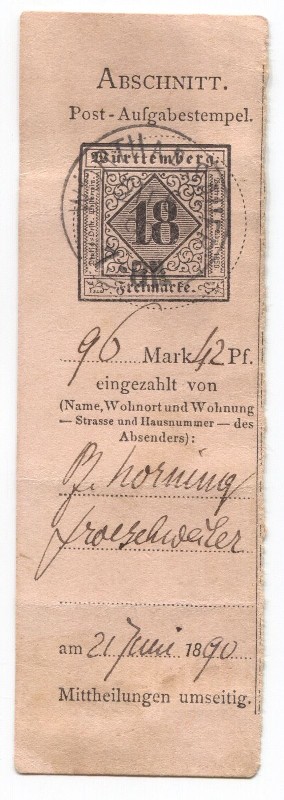 ABSCHNITT.
Post-Aufgabestempel.
Württemberg.
18
Freimarke.
96 Mark 42 Pf.
eingezahlt von
(Name, Wohnort und Wohnung
— Strasse und Hausnummer — des
Absenders):
Horning
Froeschweiler
am 21 Juni 1890
Mittheilungen umseitig.